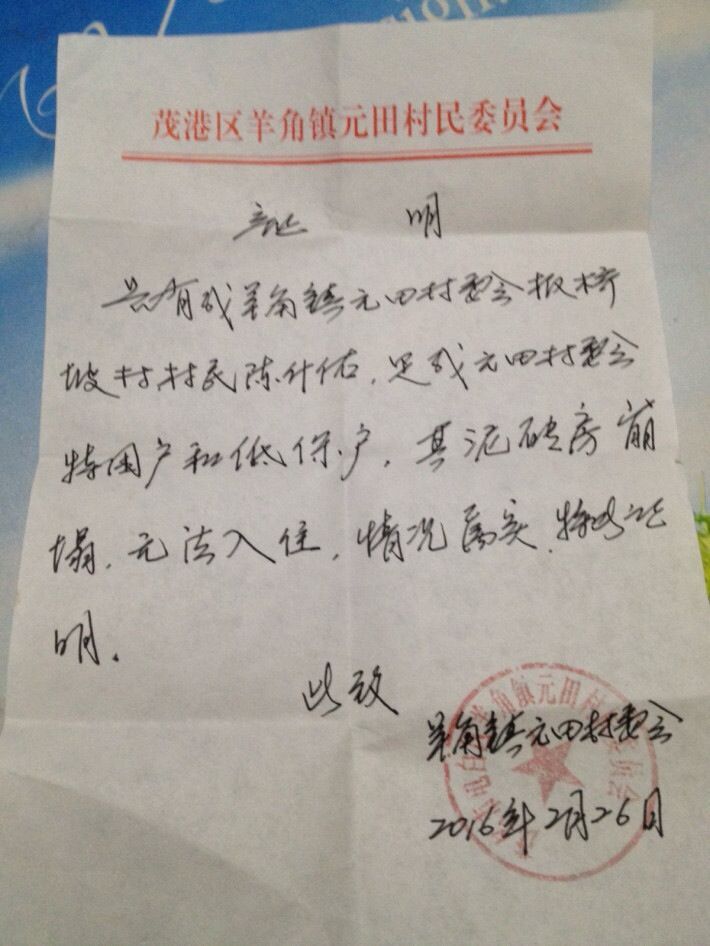 茂港区羊角镇元田村民委员会
证 明
兹有我羊角镇元田村委会板桥
坡村村民陈什佑,是我元田村委会
特困户和低保户,其泥砖房崩
塌,无法入住,情况属实,特此证
明.
此致
羊角镇元田村委会
2016年2月26日